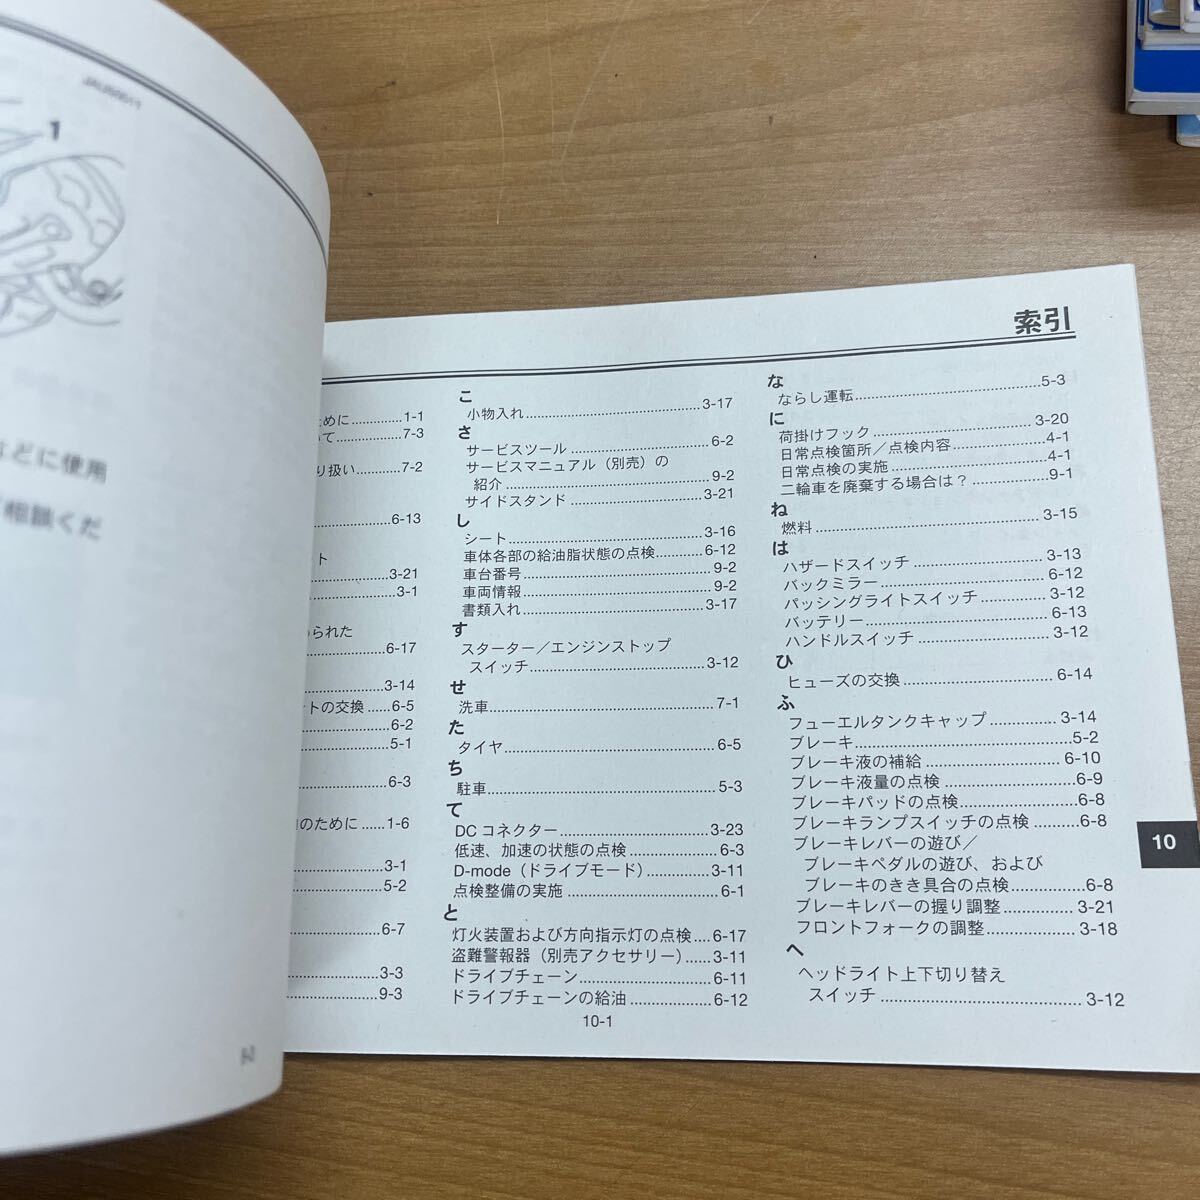 JAU50911
1
などに使用
相談くだ
索引
ために............1-1
いて............7-3
り扱い............7-2
............6-13
ト
............3-21
............3-1
められた
............6-17
............3-14
ントの交換......6-5
............6-2
............5-1
............6-3
のために......1-6
............3-1
............5-2
............6-7
............3-3
............9-3
こ
小物入れ............3-17
さ
サービスツール............6-2
サービスマニュアル(別売)の
紹介............9-2
サイドスタンド............3-21
し
シート............3-16
車体各部の給油脂状態の点検............6-12
車台番号............9-2
車両情報............9-2
書類入れ............3-17
す
スターター/エンジンストップ
スイッチ............3-12
せ
洗車............7-1
た
タイヤ............6-5
ち
駐車............5-3
て
DC コネクター............3-23
低速、加速の状態の点検............6-3
D-mode(ドライブモード)............3-11
点検整備の実施............6-1
と
灯火装置および方向指示灯の点検....6-17
盗難警報器(別売アクセサリー)......3-11
ドライブチェーン............6-11
ドライブチェーンの給油............6-12
な
ならし運転............5-3
に
荷掛けフック............3-20
日常点検箇所/点検内容............4-1
日常点検の実施............4-1
二輪車を廃棄する場合は?............9-1
ね
燃料............3-15
は
ハザードスイッチ............3-13
バックミラー............6-12
パッシングライトスイッチ............3-12
バッテリー............6-13
ハンドルスイッチ............3-12
ひ
ヒューズの交換............6-14
ふ
フューエルタンクキャップ............3-14
ブレーキ............5-2
ブレーキ液の補給............6-10
ブレーキ液量の点検............6-9
ブレーキパッドの点検............6-8
ブレーキランプスイッチの点検..........6-8
ブレーキレバーの遊び/
ブレーキペダルの遊び、および
ブレーキのきき具合の点検............6-8
ブレーキレバーの握り調整............3-21
フロントフォークの調整............3-18
へ
ヘッドライト上下切り替え
スイッチ............3-12
10
10-1